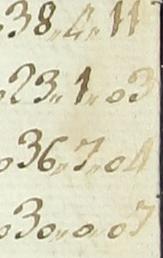 038„4„11
023„1„03
036„7„04
030„0„07